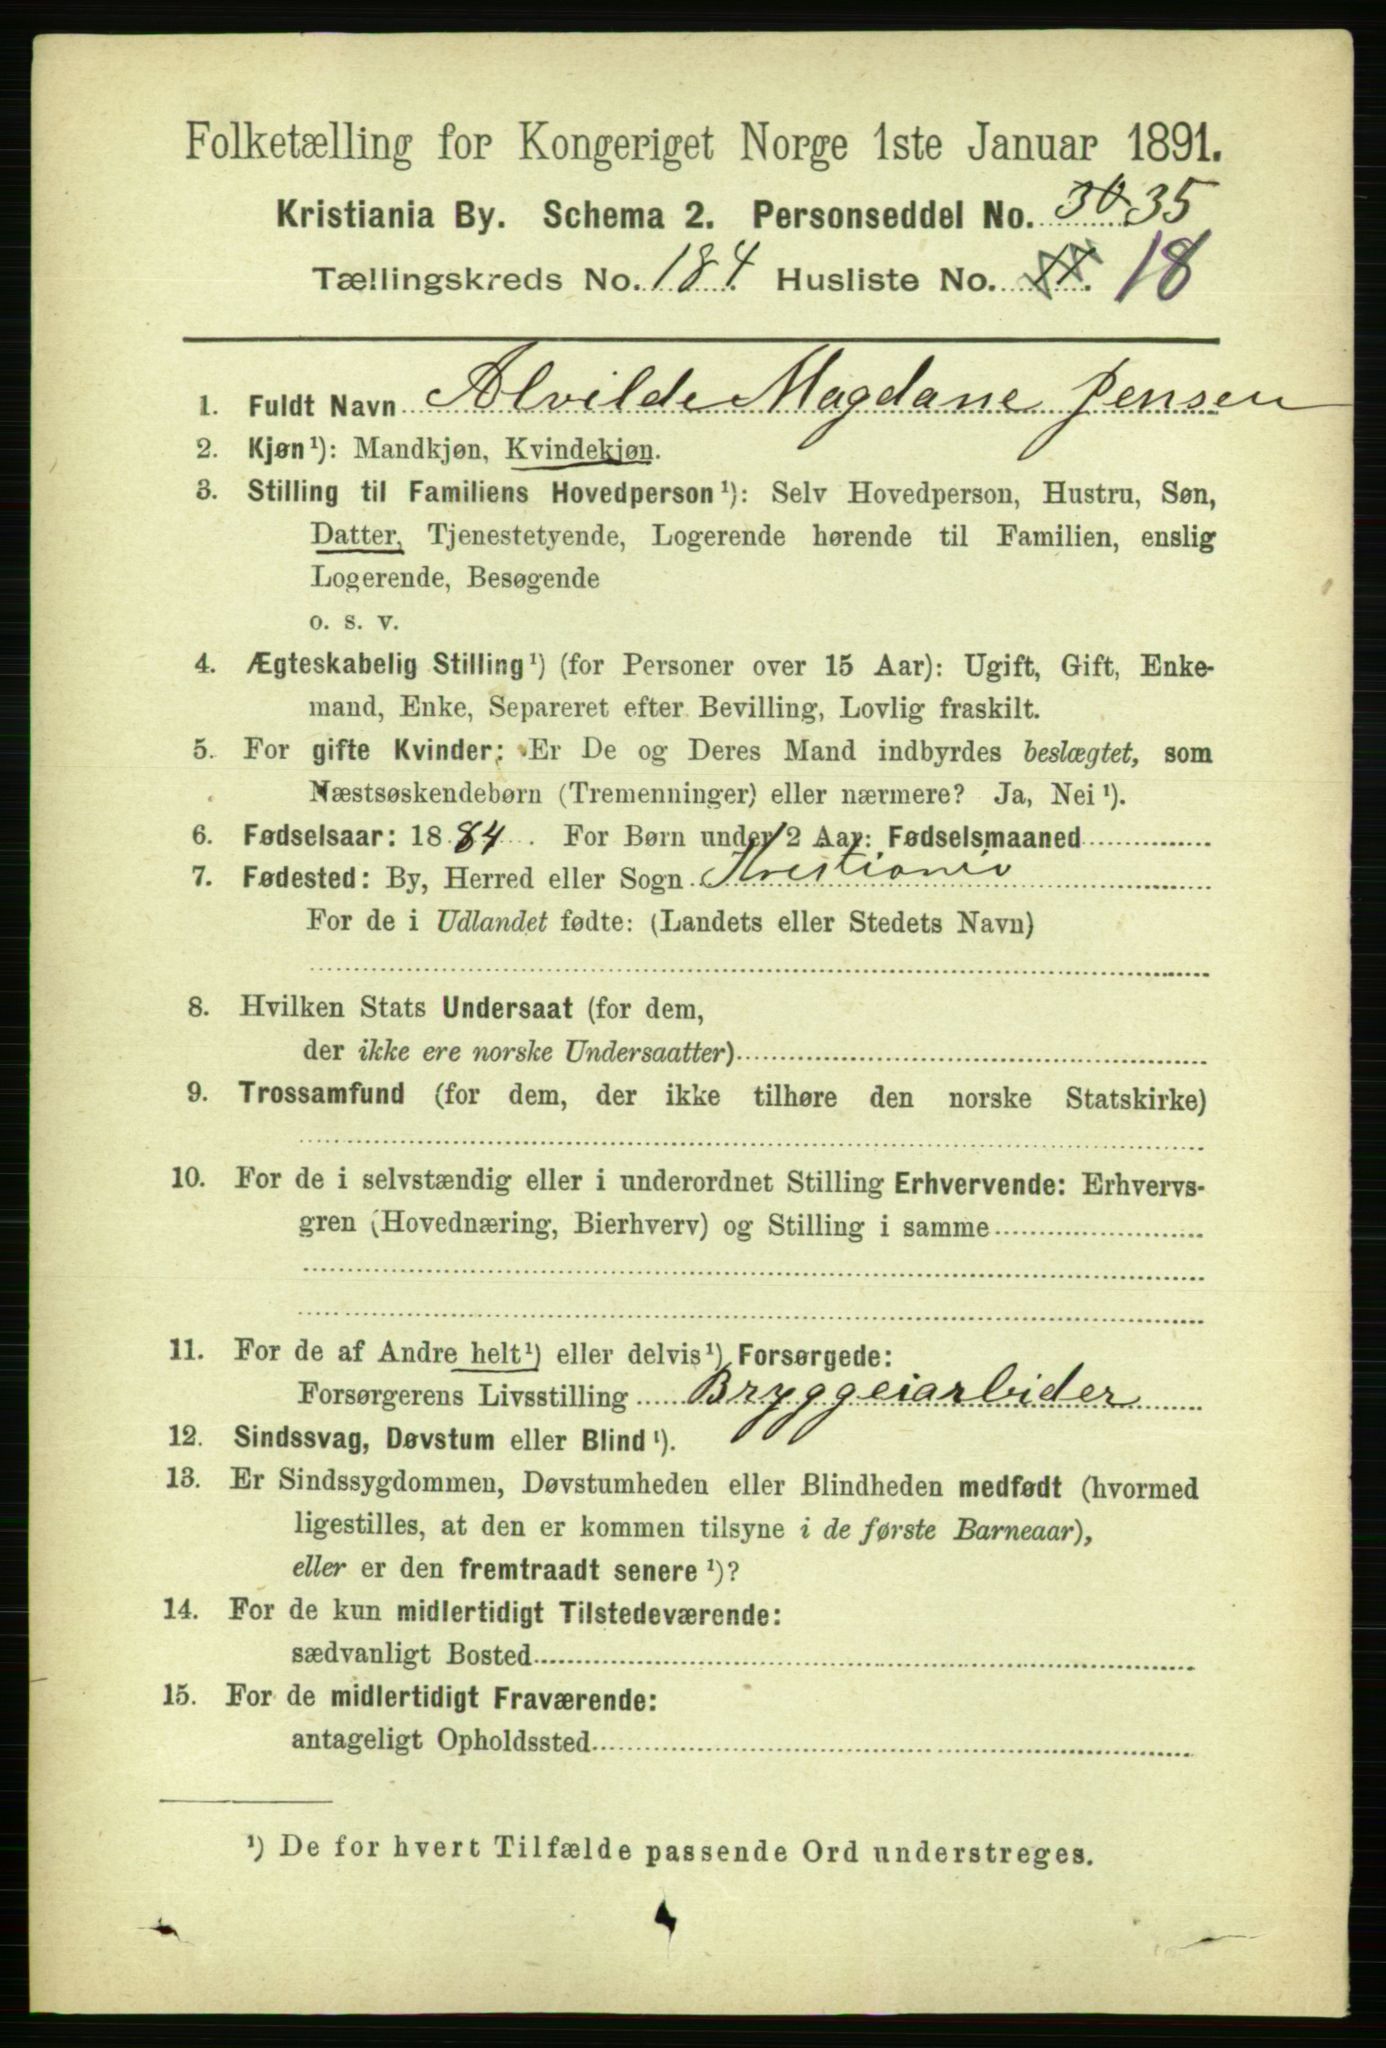 Folketælling for Kongeriget Norge 1ste Januar 1891.
Kristiania By. Schema 2. Personseddel No. 30 35
Tællingskreds No. 184. Husliste No. 18
1. Fuldt Navn Alvilde Magdane Jensen
2. Kjøn¹): Mandkjøn, Kvindekjøn.
3. Stilling til Familiens Hovedperson¹): Selv Hovedperson, Hustru, Søn,
Datter, Tjenestetyende, Logerende hørende til Familien, enslig
Logerende, Besøgende
o. s. v.
4. Ægteskabelig Stilling¹) (for Personer over 15 Aar): Ugift, Gift, Enke-
mand, Enke, Separeret efter Bevilling, Lovlig fraskilt.
5. For gifte Kvinder: Er De og Deres Mand indbyrdes beslægtet, som
Næstsøskendebørn (Tremenninger) eller nærmere? Ja, Nei¹).
6. Fødselsaar: 1884. For Børn under 2 Aar: Fødselsmaaned
7. Fødested: By, Herred eller Sogn Kristiania
For de i Udlandet fødte: (Landets eller Stedets Navn)
8. Hvilken Stats Undersaat (for dem,
der ikke ere norske Undersaatter)
9. Trossamfund (for dem, der ikke tilhøre den norske Statskirke)
10. For de i selvstændig eller i underordnet Stilling Erhvervende: Erhvervs-
gren (Hovednæring, Bierhverv) og Stilling i samme
11. For de af Andre helt¹) eller delvis¹) Forsørgede:
Forsørgerens Livsstilling Bryggeiarbeider
12. Sindssvag, Døvstum eller Blind¹).
13. Er Sindssygdommen, Døvstumheden eller Blindheden medfødt (hvormed
ligestilles, at den er kommen tilsyne i de første Barneaar),
eller er den fremtraadt senere¹)?
14. For de kun midlertidigt Tilstedeværende:
sædvanligt Bosted
15. For de midlertidigt Fraværende:
antageligt Opholdssted
¹) De for hvert Tilfælde passende Ord understreges.